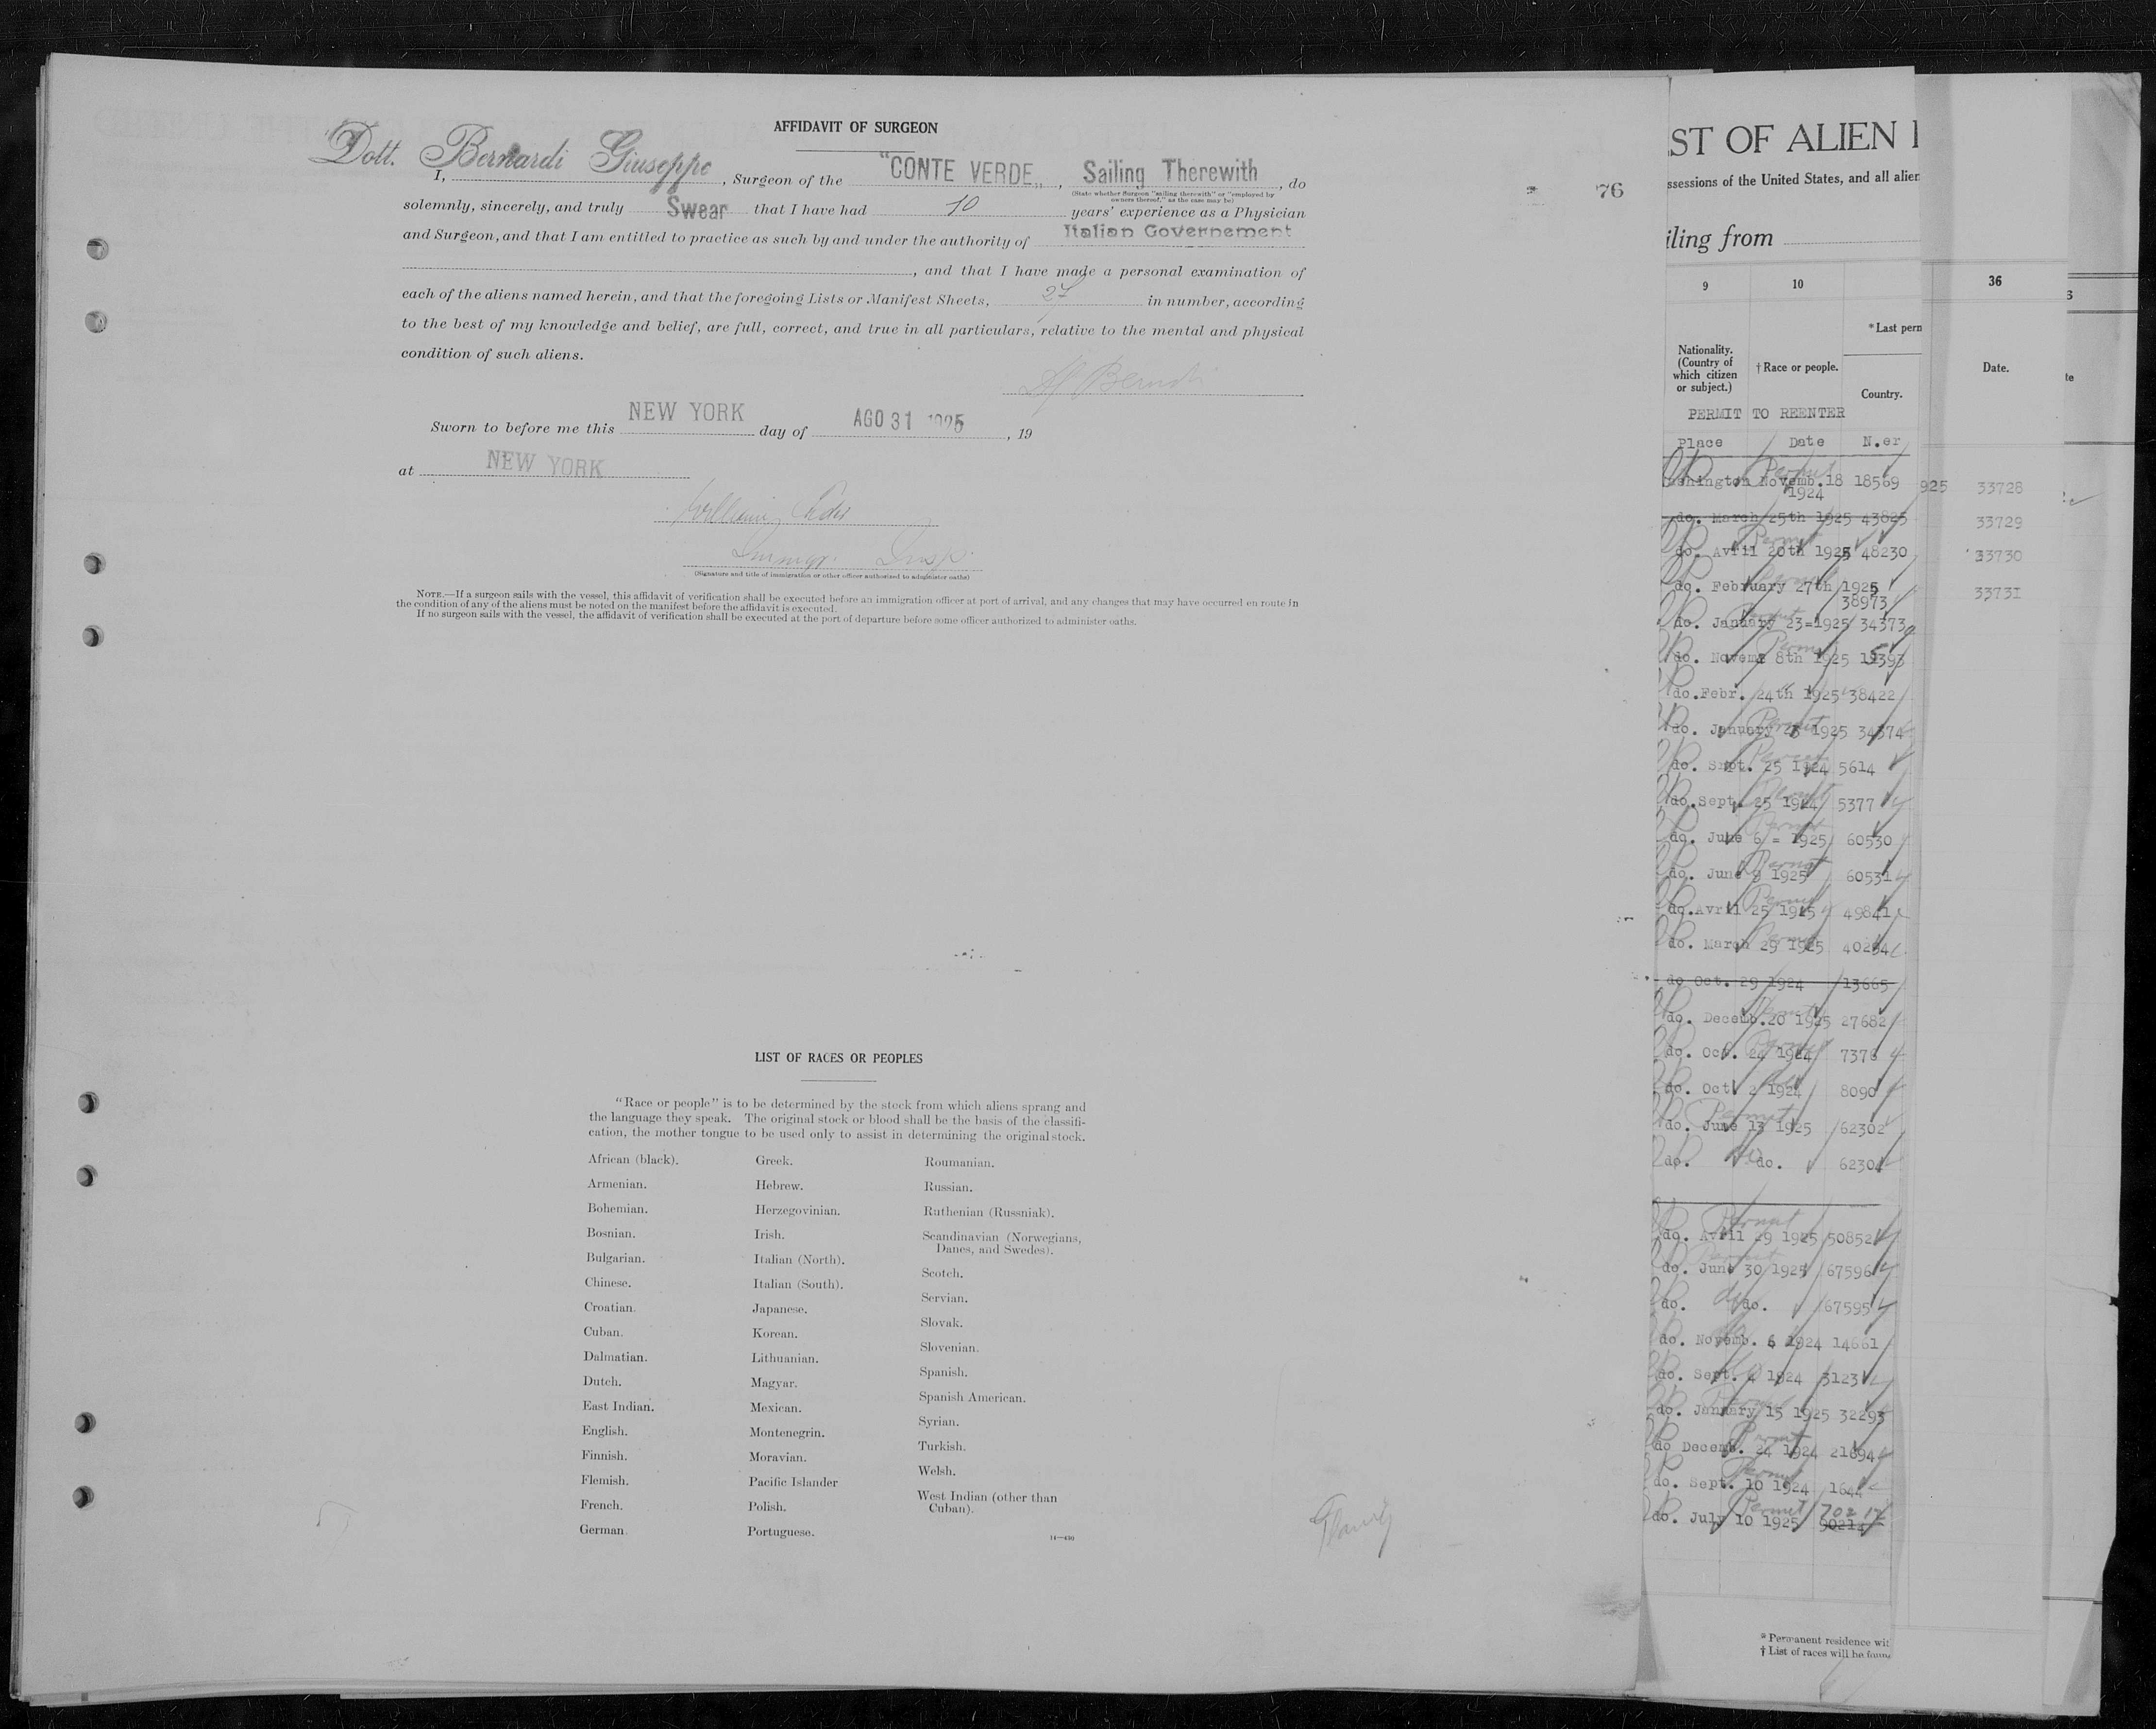 AFFIDAVIT OF SURGEON
I, Dott. Bernardi Giuseppe, Surgeon of the "CONTE VERDE„, Sailing Therewith, do
(State whether Surgeon "sailing therewith" or "employed by
owners thereof," as the case may be)
solemnly, sincerely, and truly Swear that I have had 10 years' experience as a Physician
and Surgeon, and that I am entitled to practice as such by and under the authority of Italian Governement
, and that I have made a personal examination of
each of the aliens named herein, and that the foregoing Lists or Manifest Sheets, 27 in number, according
to the best of my knowledge and belief, are full, correct, and true in all particulars, relative to the mental and physical
condition of such aliens.
Sworn to before me this NEW YORK day of AGO 31 1925, 19
at NEW YORK
Immigr. Insp.
(Signature and title of immigration or other officer authorized to administer oaths)
NOTE.—If a surgeon sails with the vessel, this affidavit of verification shall be executed before an immigration officer at port of arrival, and any changes that may have occurred en route in
the condition of any of the aliens must be noted on the manifest before the affidavit is executed.
If no surgeon sails with the vessel, the affidavit of verification shall be executed at the port of departure before some officer authorized to administer oaths.
76
LIST OF RACES OR PEOPLES
"Race or people" is to be determined by the stock from which aliens sprang and
the language they speak. The original stock or blood shall be the basis of the classifi-
cation, the mother tongue to be used only to assist in determining the original stock.
African (black).
Armenian.
Bohemian.
Bosnian.
Bulgarian.
Chinese.
Croatian.
Cuban.
Dalmatian.
Dutch.
East Indian.
English.
Finnish.
Flemish.
French.
German.
Greek.
Hebrew.
Herzegovinian.
Irish.
Italian (North).
Italian (South).
Japanese.
Korean.
Lithuanian.
Magyar.
Mexican.
Montenegrin.
Moravian.
Pacific Islander
Polish.
Portuguese.
Roumanian.
Russian.
Ruthenian (Russniak).
Scandinavian (Norwegians,
Danes, and Swedes).
Scotch.
Servian.
Slovak.
Slovenian.
Spanish.
Spanish American.
Syrian.
Turkish.
Welsh.
West Indian (other than
Cuban).
14—430
ST OF ALIEN
ssessions of the United States, and all alien
iling from
9 10
*Last perm
Nationality.
(Country of
which citizen
or subject.)
†Race or people.
Country.
PERMIT TO REENTER
Place Date N.er
shington Novemb.18 18569
1924
do. March 25th 1925 43825
do. Avril 20th 1925 48230
do. February 27th 1925
38973
do. January 23=1925 34373
do. Novemb 8th 1925
do.Febr. 24th 1925 38422
do. January 23 1925 34374
do. Sept. 25 1924 5614
do.Sept. 25 1924 5377
do. June 6 = 1925 60530
do. June 9 1925 60531
do.Avril 25 1925 49841
do. March 29 1925 40294
do Oct. 29 1924 13665
do. Decemb.20 1925 27682
do. Oct. 24 1924 7378
do. Oct 2 1924 8090
do. June 13 1925 62302
do. do. 62304
do. Avril 29 1925 50852
do. June 30 1925 67596
do. do. 67595
do. Novemb. 6 1924 14661
do. Sept. 4 1924 3123
do. January 15 1925 32293
do Decemb. 24 1924 21694
do. Sept. 10 1924 1644
do. July 10 1925 70217
* Permanent residence wit
† List of races will be foun
36
Date.
925 33728
33729
33730
33731